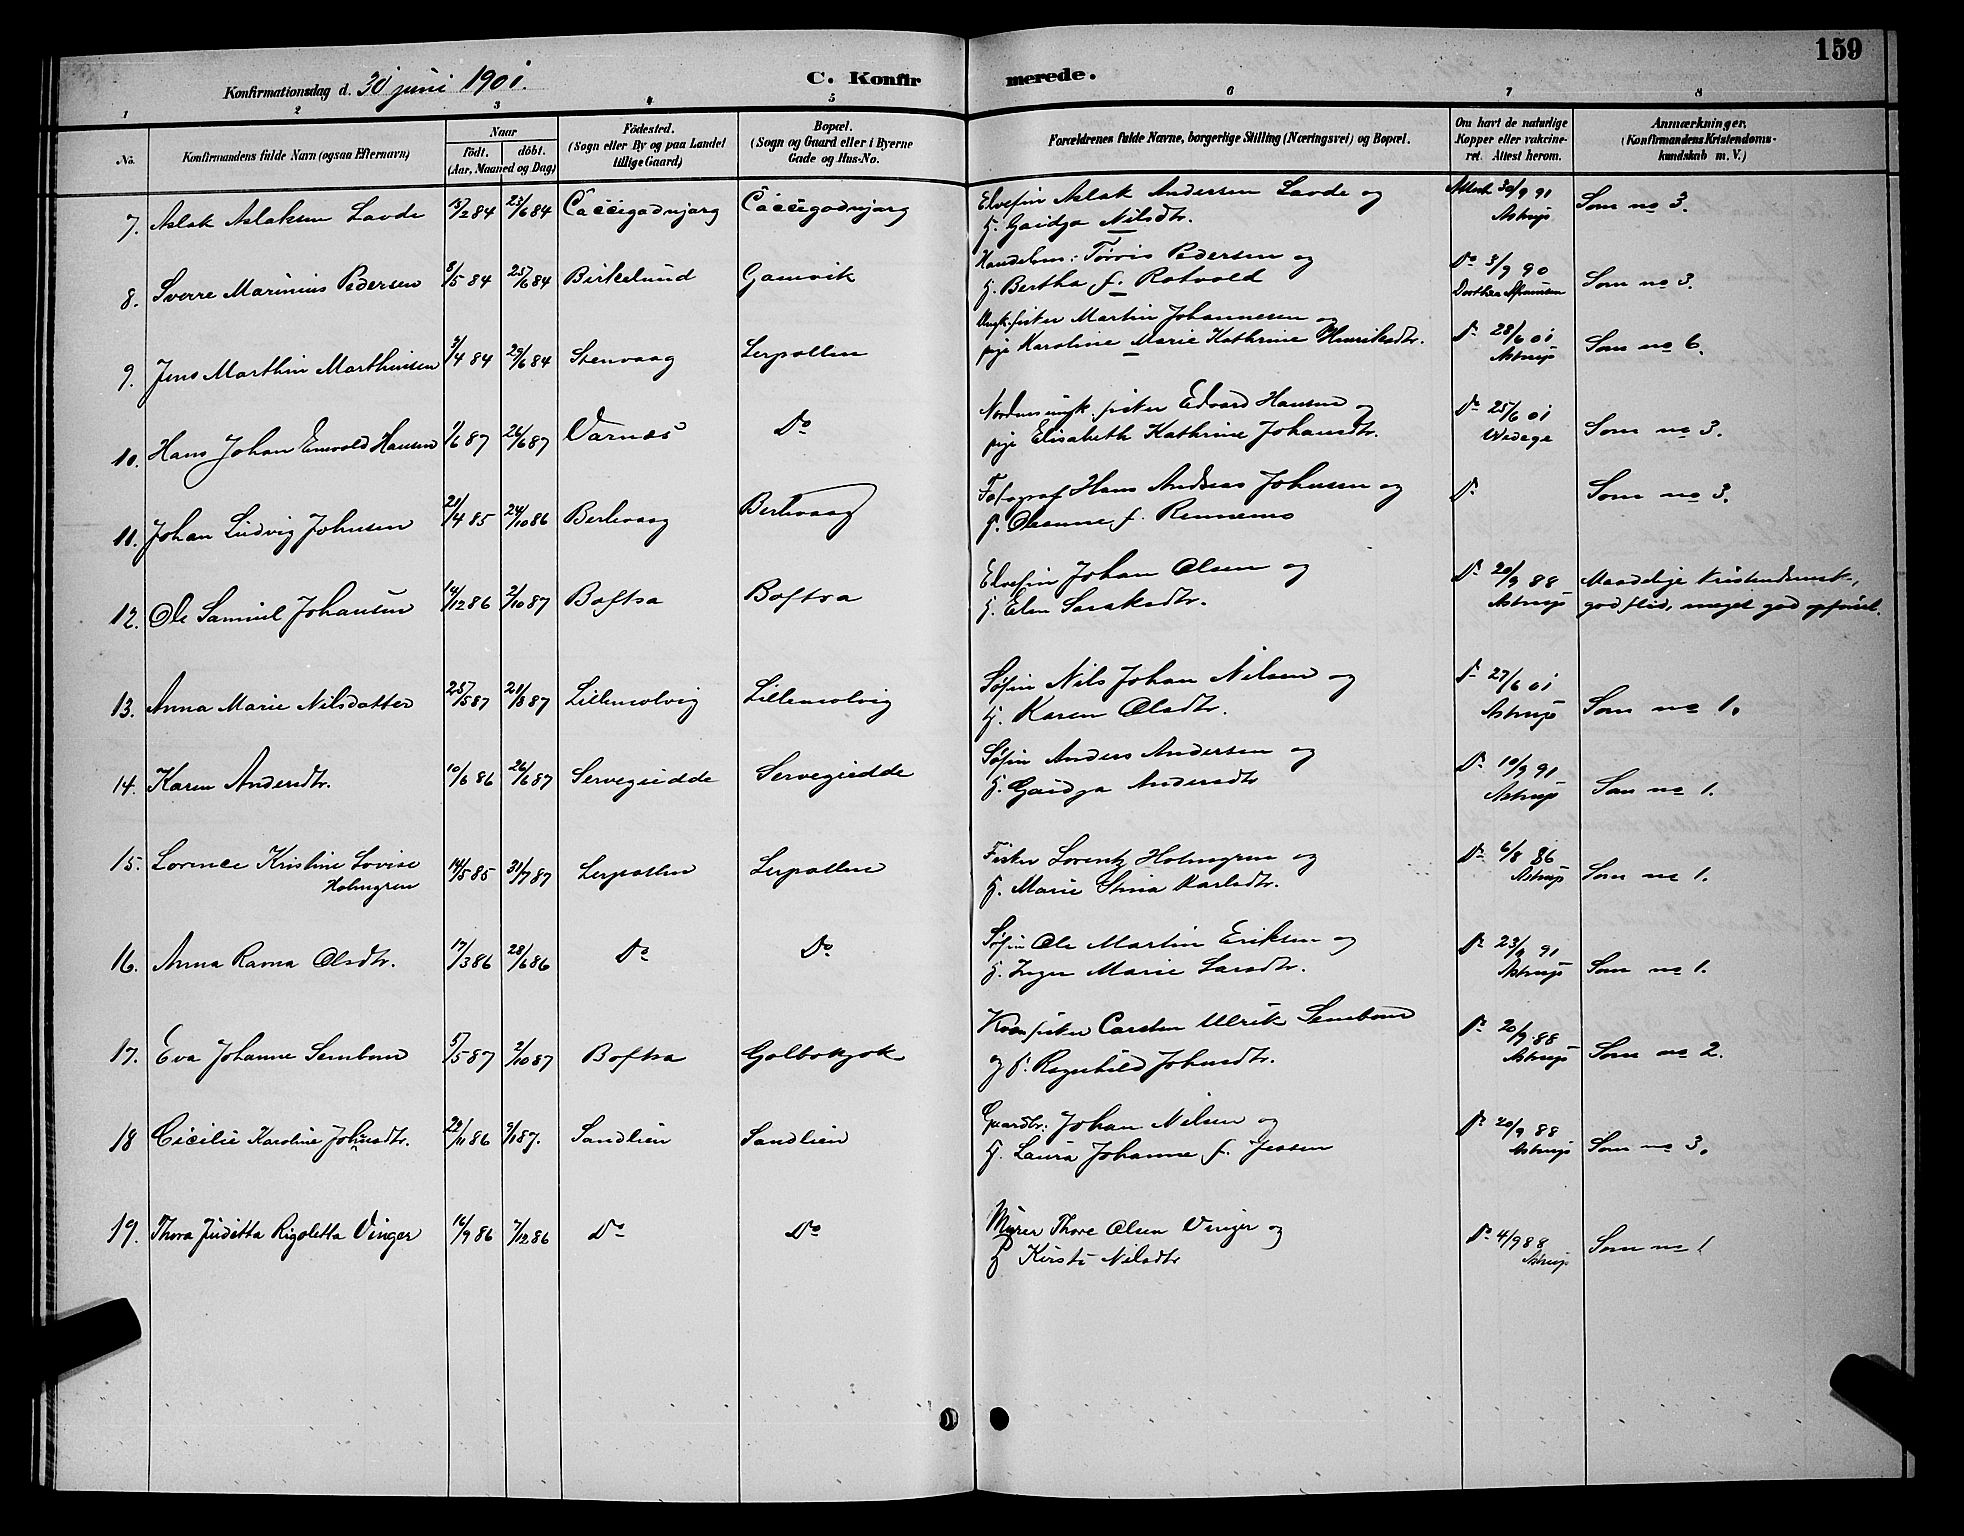 159
Konfirmationsdag d. 30 juni 1901. C. Konfirmerede.
1 2 3 4 5 6 7 8
No. Konfirmandens fulde Navn (ogsaa Efternavn) Naar födt. döbt. (Aar, Maaned og Dag) Födested. (Sogn eller By og paa Landet tillige Gaard) Bopæl. (Sogn og Gaard eller i Byerne Gade og Hus-No. Forældrenes fulde Navne, borgerlige Stilling (Næringsvei) og Bopæl. Om havt de naturlige Kopper eller vakcineret. Attest herom. Anmærkninger, (Konfirmandens Kristendomskundskab m. V.)
7. Aslak Aslaksen Lavde 15/2 84 25/6 84 Caccegadnjarg Caccegadnjarg Elvefin Aslak Andersen Lavde og
H. Gaidja Nilsdtr. Attest 30/9 91 Astrup Som no 3.
8. Sverre Marinius Pedersen 8/5 84 25/6 84 Birkelund Gamvik Handelsm: Torvis Pedersen og
H. Bertha f. Rotvold Do 3/9 90 Dorthea Som no 3.
9. Jens Marthin Marthinsen 3/4 84 29/6 84 Stenvaag Lerpollen Ungk. fisker Martin Johannesen og
pige Karoline Marie Kathrine Henriksdtr. Do 28/6 01 Astrup Som no 6.
10. Hans Johan Enevold Hansen 1/6 87 26/6 87 Varnæs Do Nordmd ungk. fisker Edvard Hansen og
pige Elisabeth Kathrine Johansdtr. Do 25/6 01 Wedege Som no 3.
11. Johan Ludvig Johnsen 21/4 85 24/10 86 Berlevaag Berlevaag Fotograf Hans Andreas Johnsen og
H. Oleanne f. Rennemo Do Som no 3.
12. Ole Samuel Johansen 14/12 86 2/10 87 Boftsa Boftsa Elvefin Johan Olsen og
H. Elen Saraksdtr. Do 20/9 88 Astrup Maadelige kristendomsk.,
god flid, meget god opförsel.
13. Anna Marie Nilsdatter 25/5 87 21/8 87 Lillemolvig Lillemolvig Söfin Nils Johan Nilsen og
H. Karen Olsdtr. Do 27/6 01 Astrup Som no 1.
14. Karen Andersdtr. 10/6 86 26/6 87 Servegiedde Servegiedde Söfin Anders Andersen og
H. Gaidja Andersdtr Do 10/9 91 Astrup Som no 1.
15. Lorence Kristine Lovise Holmgren 14/5 85 31/7 87 Lerpollen Lerpollen Fisker Lorentz Holmgren og
H. Marie Stina Karlsdtr. Do 6/8 86 Astrup Som no 1.
16. Anna Ravna Olsdtr. 17/3 86 28/6 86 Do Do Söfin Ole Martin Eriksen og
H. Inger Marie Larsdtr. Do 23/9 91 Astrup Som no 1.
17. Eva Johanne Sembom 5/5 87 2/10 87 Boftsa Golbokjok Kvæn fisker Carsten Ulrik Sembom
og H. Ragnhild Johnsdtr. Do 20/9 88 Astrup Som no 2.
18 Cicilie Karoline Johansdtr. 29/11 86 9/1 87. Sandlien Sandlien Gaardbr: Johan Nilsen og
H. Laura Johanne f. Jessen Do 20/9 88 Astrup Som no 3.
19. Thora Juditta Rigoletta Vinger 16/9 86 7/12 86 Do Do Murer Thore Olsen Vinger og
H Kirsti Nilsdtr Do 4/9 88 Astrup Som no 1